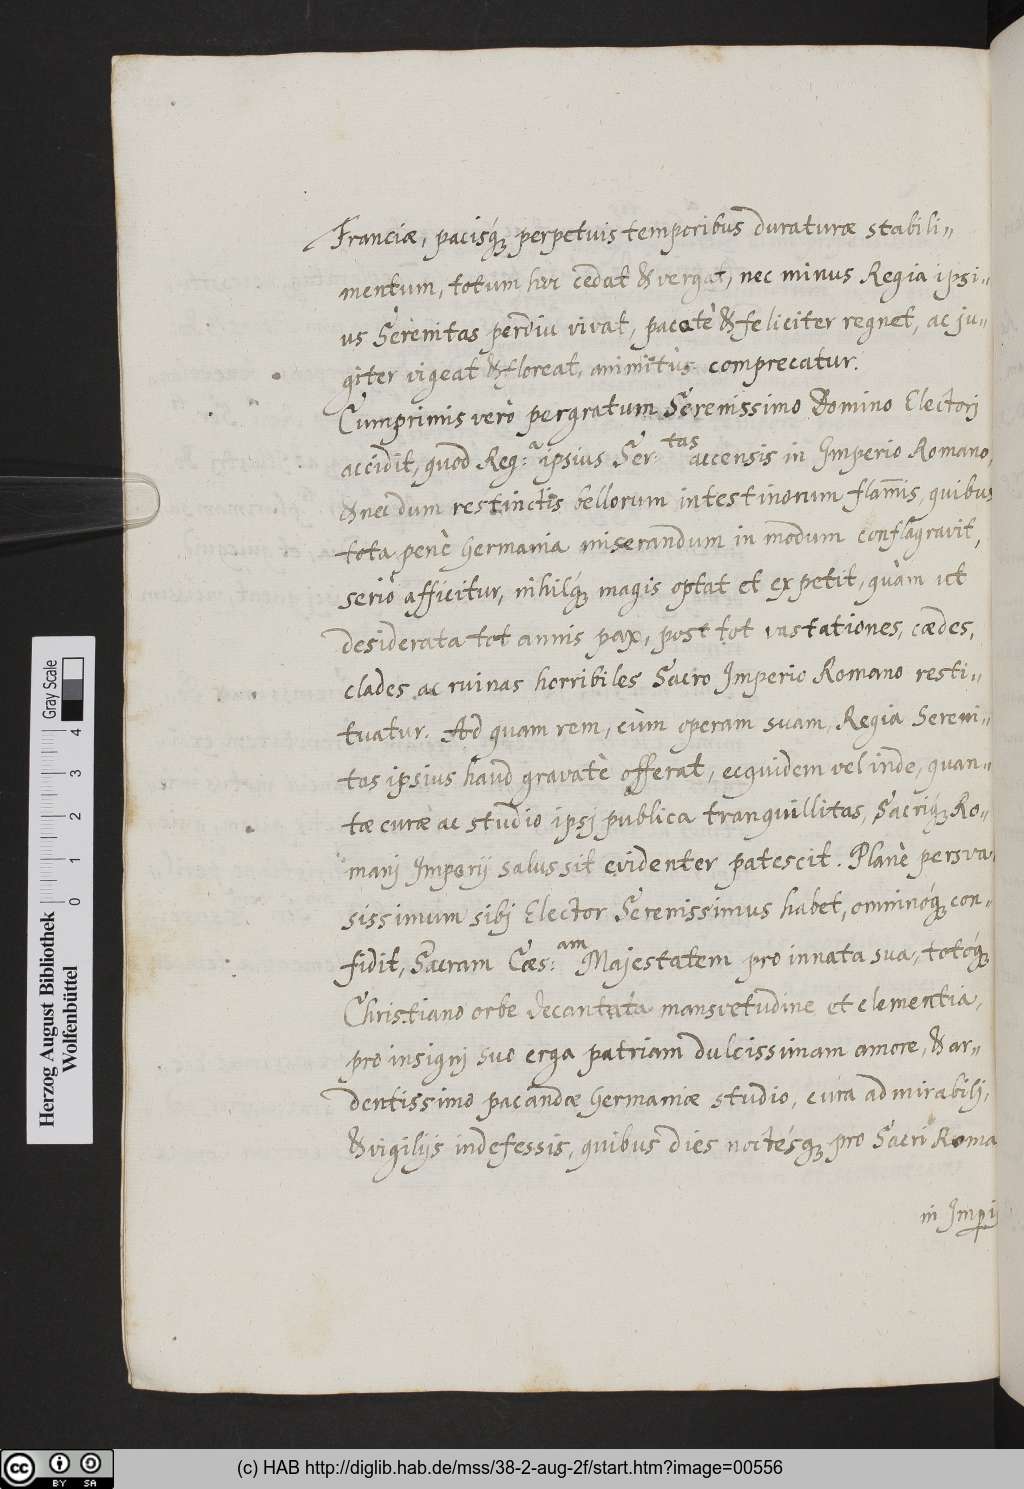 Franciæ, pacisq́ue perpetuis temporibus duraturæ stabili„
mentum, totum hoc cedat & vergat, nec minus Regia ipsi„
us Serenitas perdiu vivat, pacatè & feliciter regnet, ac ju„
giter vigeat & floreat, animitùs comprecatur.
Cumprimis verò pergratum Serenissimo Domino Electorj
accidit, quod Reg:ᵃ ipsius Ser:ᵗᵃˢ accensis in Imperio Romano,
& nec dum restinctis bellorum intestinorum flam̄is, quibus
tota penè Germania miserandum in modum conflagravit,
seriò afficitur, nihilq́ue magis optat et expetit, quàm ut
desiderata tot annis pax, post tot vastationes, cædes,
clades ac ruinas horribiles Sacro Imperio Romano resti„
tuatur. Ad quam rem, cùm operam suam, Regia Sereni„
tas ipsius haud gravatè offerat, ecquidem vel inde, quan„
tæ curæ ac studio ipsj publica tranquillitas, Sacriq́ue Ro„
manj Imperij salus sit evidenter patescit. Planè persva
sissimum sibj Elector Serenissimus habet, omninóq́ue con„
fidit, Sacram Cæs:ᵃᵐ Majestatem pro innata sua, totóq́ue
Christiano orbe decantata mansvetudine et clementia,
pro insignj suo erga patriam dulcissimam amore, & ar„
dentissimo pacandæ Germaniæ studio, cura admirabilj,
& vigilijs indefessis, quibus dies noctésq́ue pro Sacri Roma
ni Imperij
Herzog August Bibliothek
Wolfenbüttel
0 1 2 3 4
Gray Scale
cc BY SA
(c) HAB http://diglib.hab.de/mss/38-2-aug-2f/start.htm?image=00556